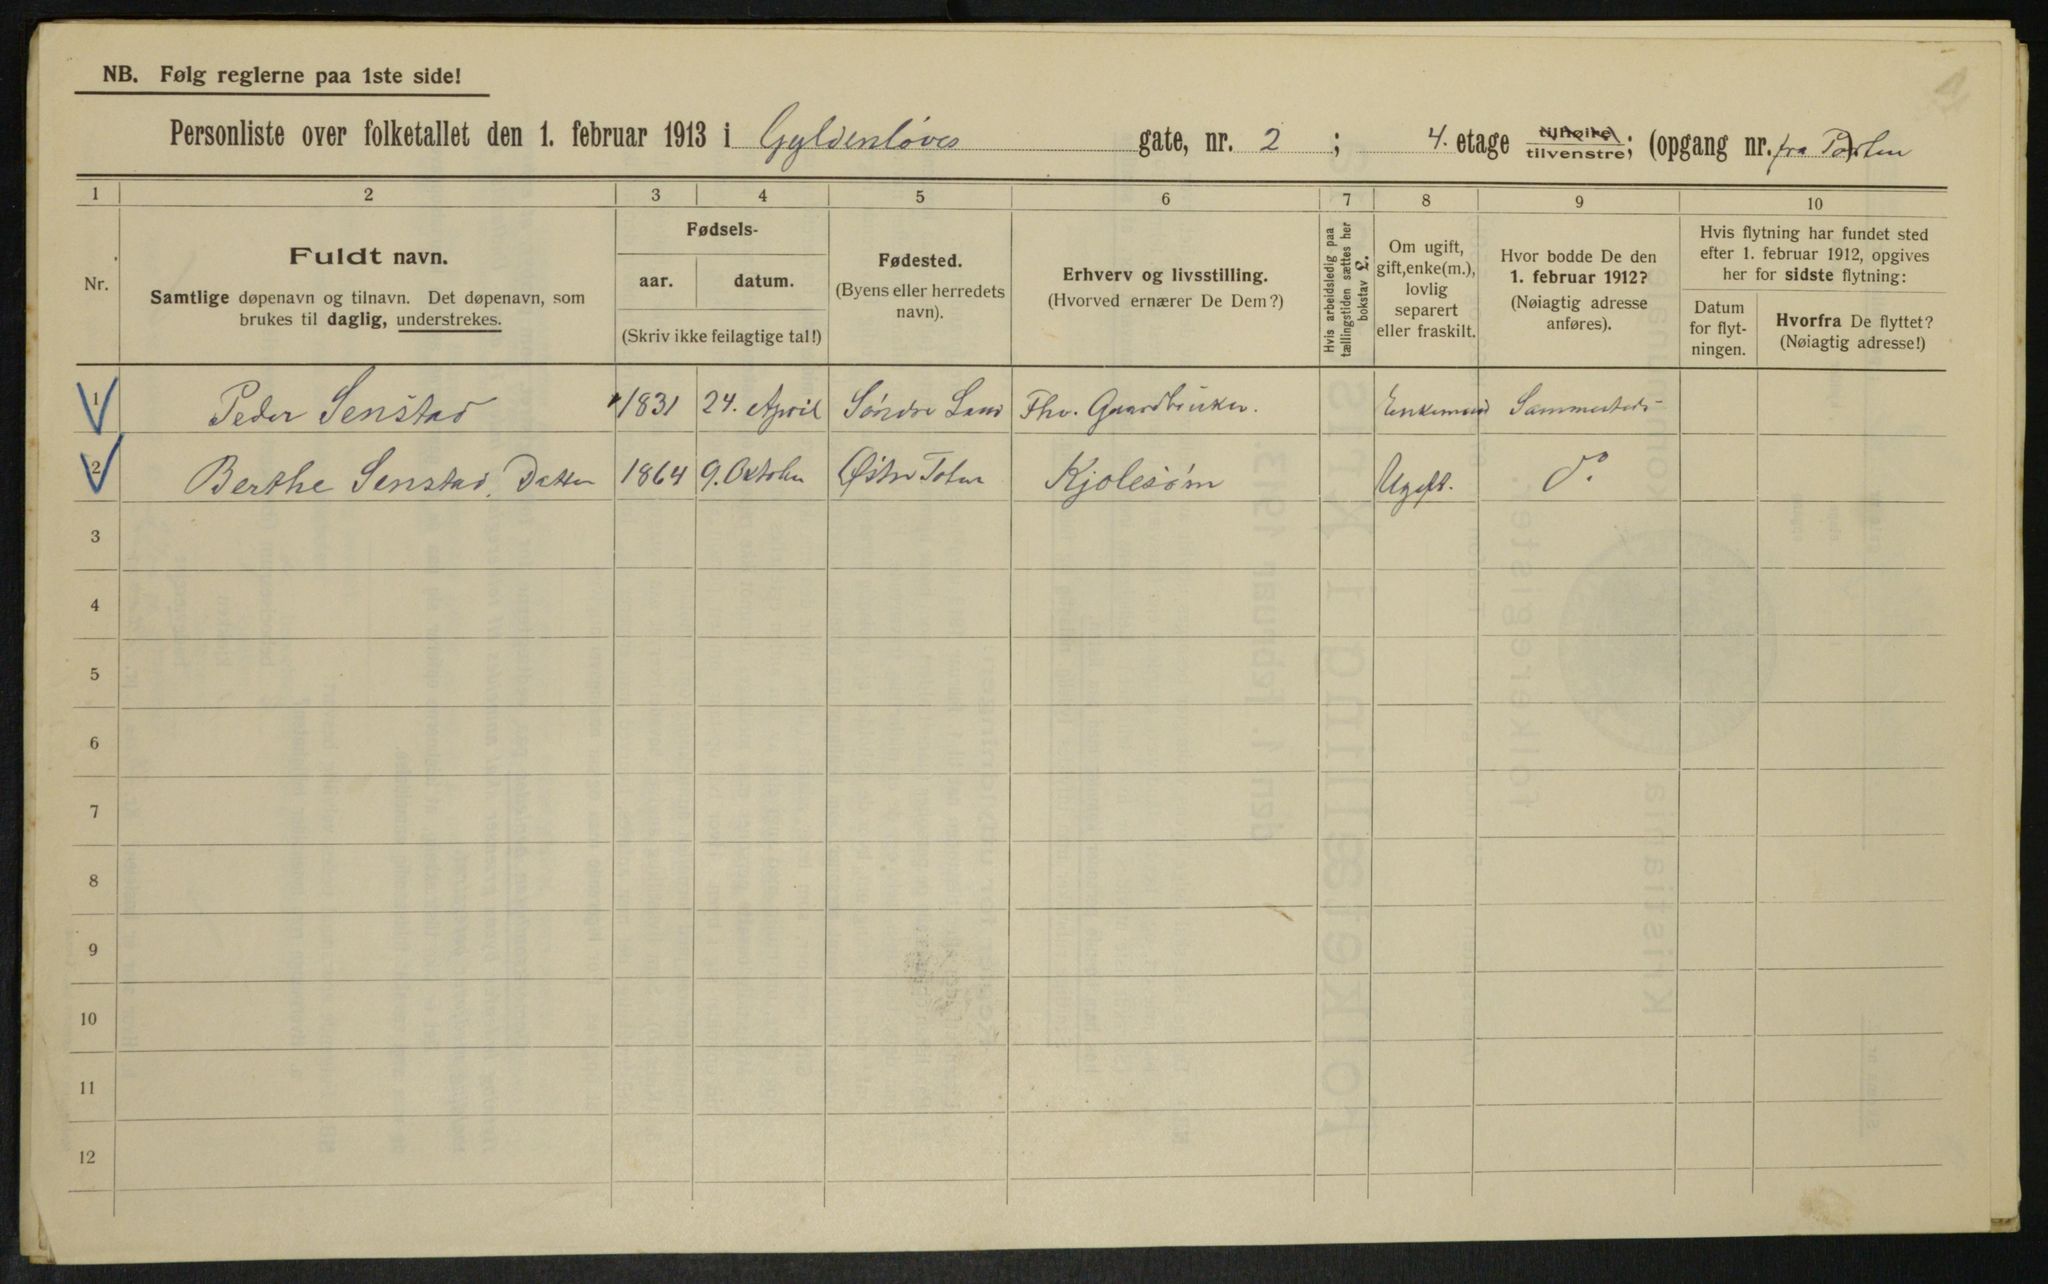 NB. Følg reglerne paa 1ste side!
Personliste over folketallet den 1. februar 1913 i Gyldenløves gate, nr. 2 ; 4. etage tilhøire/tilvenstre; (opgang nr. fra Porten)
1 2 3 4 5 6 7 8 9 10
Nr.
Fuldt navn.
Samtlige døpenavn og tilnavn. Det døpenavn, som
brukes til daglig, understrekes.
Fødsels-
aar. datum.
(Skriv ikke feilagtige tal!)
Fødested.
(Byens eller herredets
navn).
Erhverv og livsstilling.
(Hvorved ernærer De Dem?)
Hvis arbeidsledig paa
tællingstiden sættes her
bokstav L.
Om ugift,
gift, enke(m.),
lovlig
separert
eller fraskilt.
Hvor bodde De den
1. februar 1912?
(Nøiagtig adresse
anføres).
Hvis flytning har fundet sted
efter 1. februar 1912, opgives
her for sidste flytning:
Datum
for flyt-
ningen.
Hvorfra De flyttet?
(Nøiagtig adresse!)
1 Peder Senstad 1831 24. April Søndre Land Fhv. Gaardbruker. Enkemand Sammesteds
2 Berthe Senstad, Datter 1864 9. Oktober Østre Toten Kjolesøm Ugift. do.
3
4
5
6
7
8
9
10
11
12